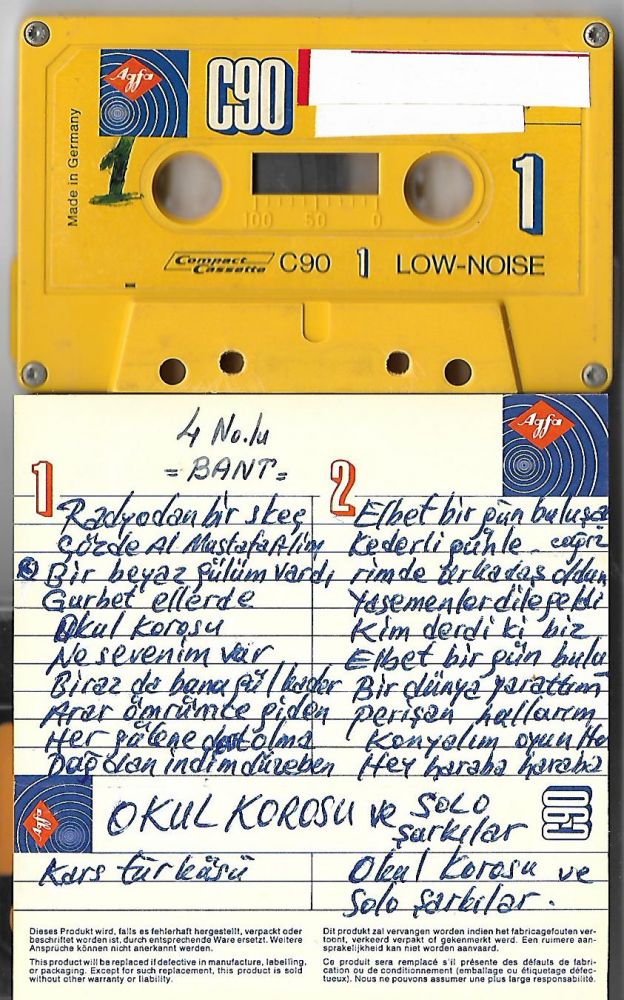 Agfa
C90
Made in Germany
1
1
100 50 0
Compact Cassette C90 1 LOW-NOISE
4 No.lu
Agfa
= BANT =
1
2
Radyodan bir skeç
Gözde Al Mustafa Alim
Bir beyaz gülüm vardı
Gurbet ellerde
Okul Korosu
Ne sevenim var
Biraz da bana gül kader
Arar ömrümce giden
Her gülene dost olma
Dağdan indim düze ben
Elbet bir gün buluşa
Kederli günle
rimde arkadaş oldun
Yasemenler dile geldi
Kim derdi ki biz
Elbet bir gün bulu
Bir dünya yarattım
perişan hallarım
Konyalım oyun Ha
Hey haraba haraba
Agfa
OKUL KOROSU ve SOLO
şarkılar
C90
Kars türküsü
Okul Korosu ve
Solo şarkılar.
Dieses Produkt wird, falls es fehlerhaft hergestellt, verpackt oder
beschriftet worden ist, durch entsprechende Ware ersetzt. Weitere
Ansprüche können nicht anerkannt werden.
This product will be replaced if defective in manufacture, labelling,
or packaging. Except for such replacement, this product is sold
without other warranty or liability.
Dit produkt zal vervangen worden indien het fabricagefouten ver-
toont, verkeerd verpakt of gekenmerkt werd. Een ruimere aan-
sprakelijkheid kan niet worden aanvaard.
Ce produit sera remplacé s'il présente des défauts de fabri-
cation ou de conditionnement (emballage ou étiquetage défec-
tueux). Nous ne pouvons assumer une plus large responsabilité.